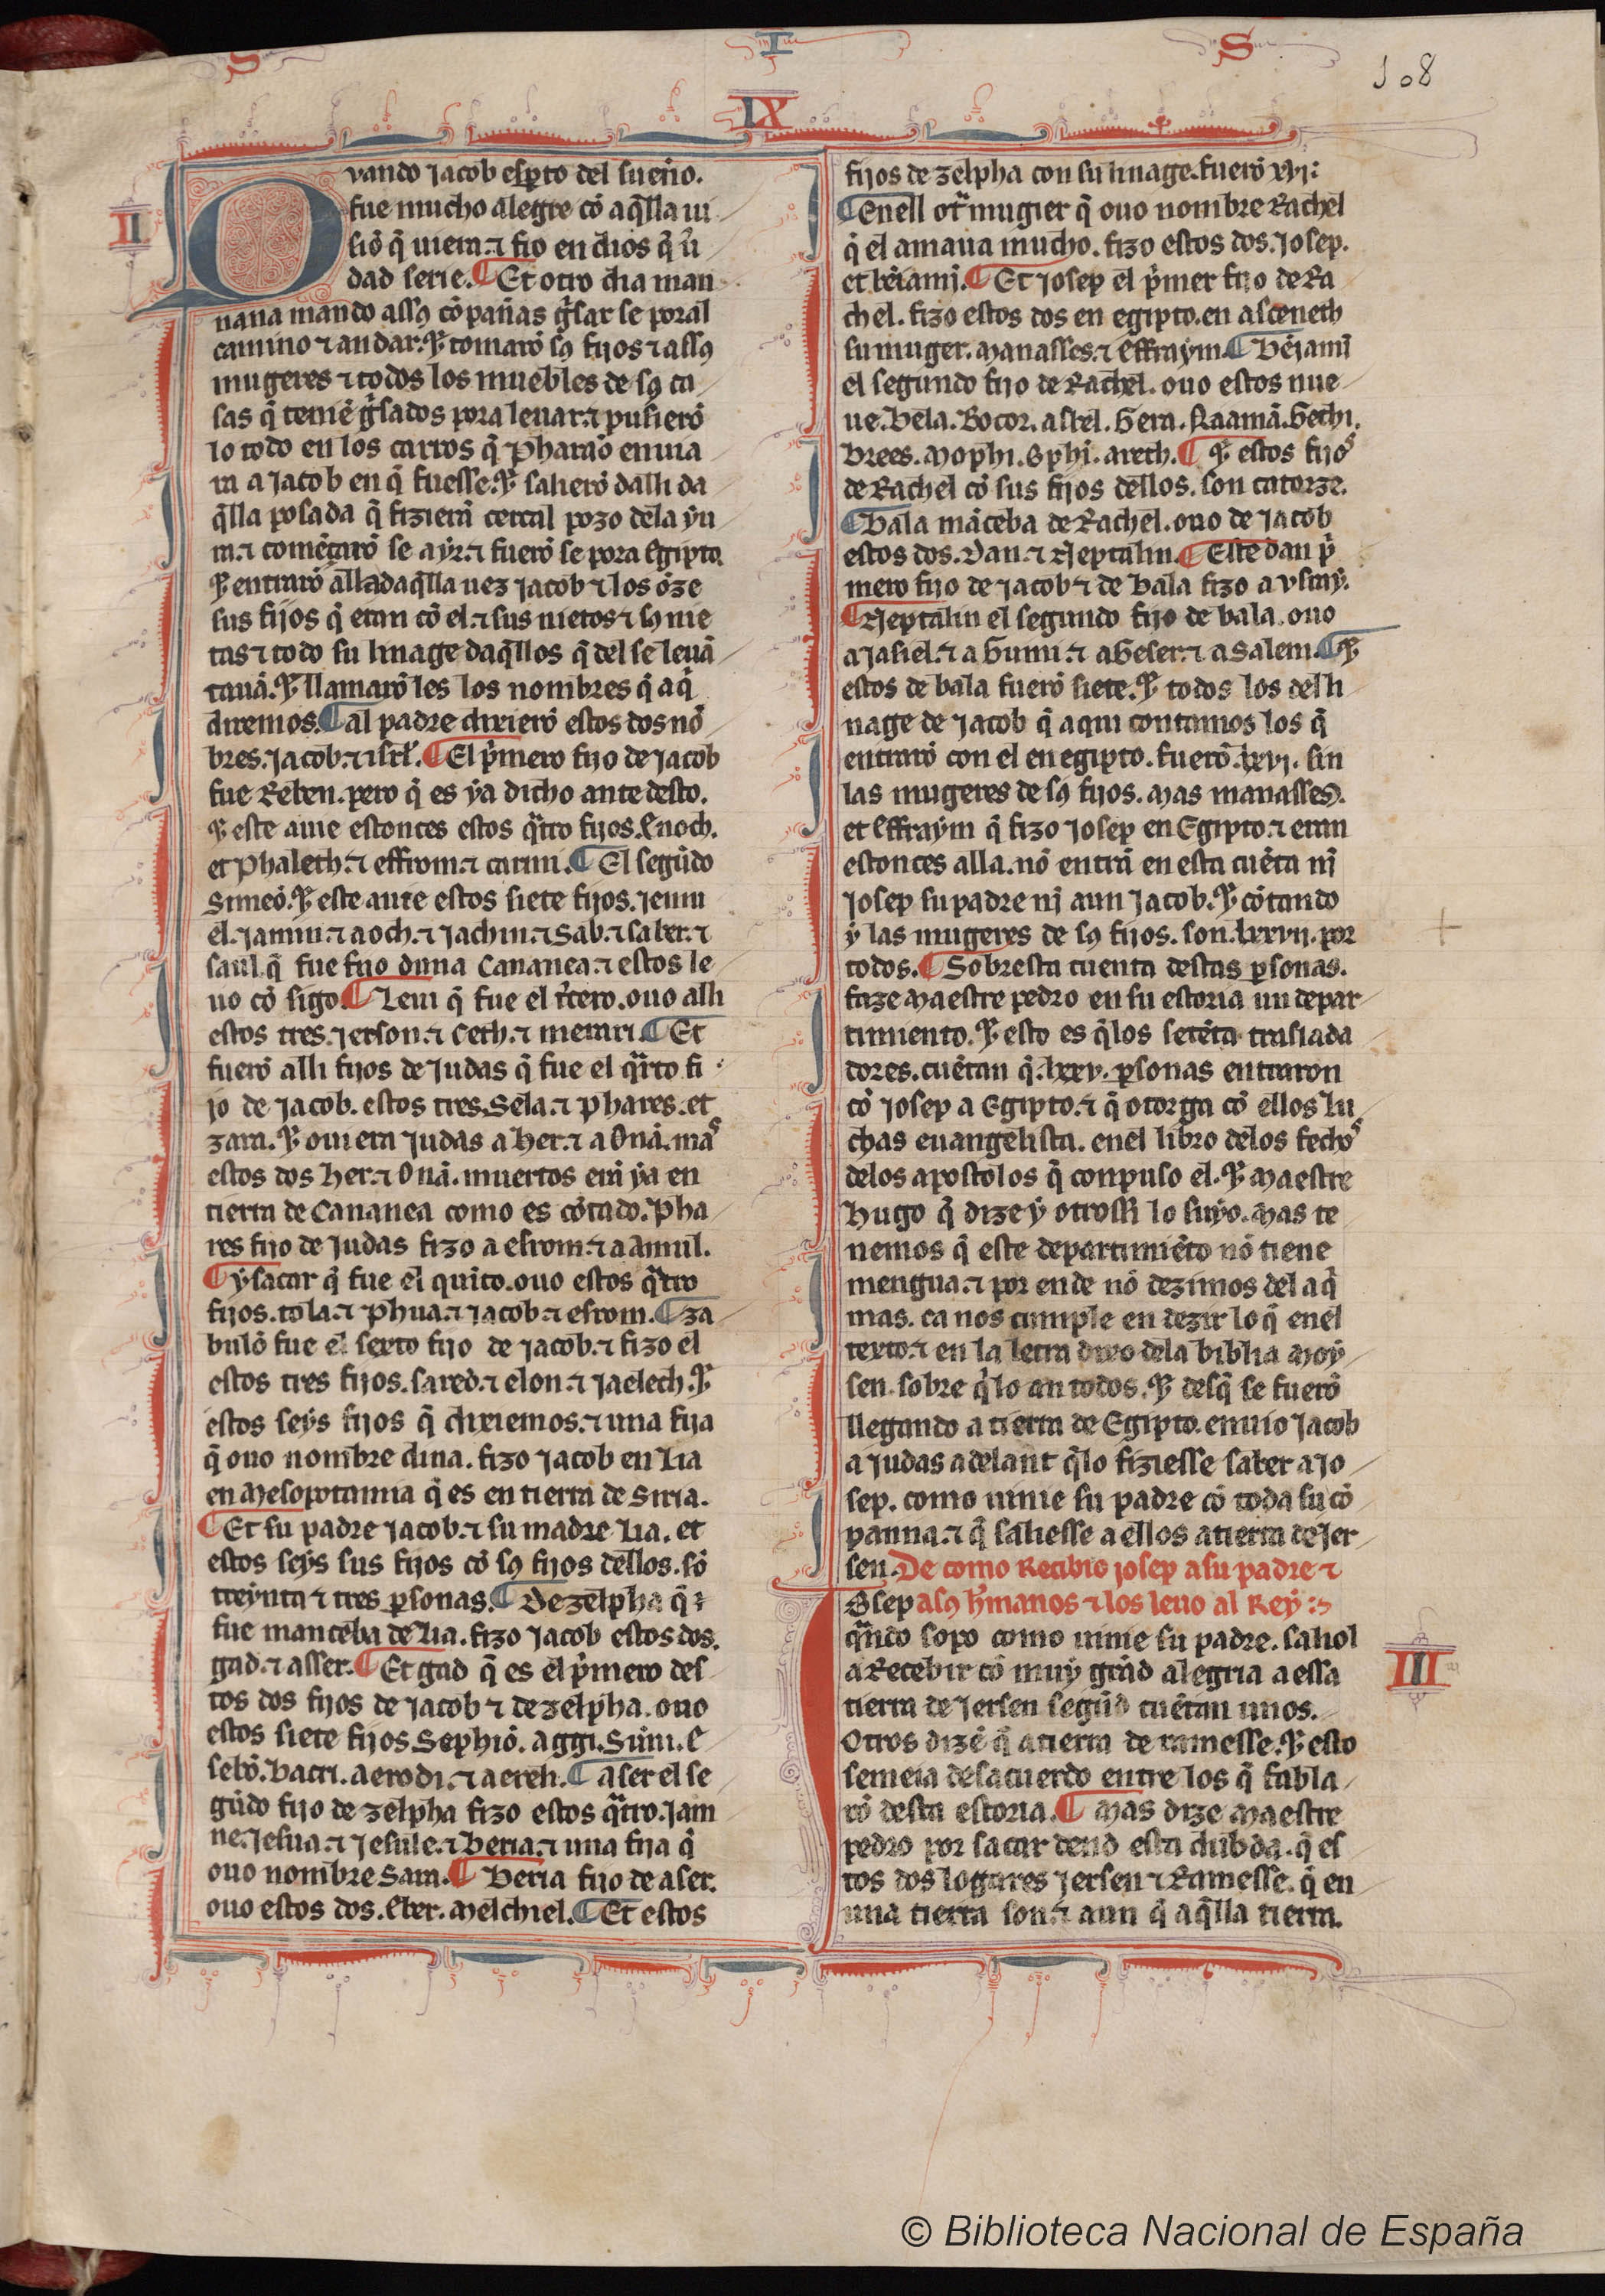 S I S
108
IX
II
Quando jacob esꝑto del sueño.
fue mucho alegre cõ aq̃lla ui
siõ q̃ uiera. ⁊ fio en dios q̃ ũ
dad serie. ¶ Et otro dia man
nana mando assꝯ cõpañas g̃sar se poral
camino ⁊ andar. ⁊ tomarõ sꝯ fijos ⁊ assꝯ
mugeres ⁊ todos los muebles de sꝯ ca
sas q̃ teniẽ g̃sados pora leuar. ⁊ pusierõ
lo todo en los carros q̃ Pharaõ enuia
ra a Jacob en q̃ fuesse. ⁊ salierõ dalli da
q̃lla posada q̃ fizierã cercal pozo dela yu
ra. ⁊ comẽçarõ se a yr. ⁊ fuerõ se pora Egipto.
⁊ entrarõ alla daq̃lla uez jacob ⁊ los õze
sus fijos q̃ eran cõ el. ⁊ sus nietos ⁊ sꝯ nie
tas ⁊ todo su linage daq̃llos q̃ del se leuã
tauã. ⁊ llamarõ les los nombres q̃ aq̃
diremos. ¶ al padre dixierõ estos dos nõ
bres. Jacob. ⁊ isrł. ¶ El p̃mero fijo de jacob
fue Reben. pero q̃ es ya dicho ante desto.
⁊ este auie estonces estos q̃tro fijos. Enoch.
et Phaleth. ⁊ effrom. ⁊ carmi. ¶ El segũdo
Simeõ. ⁊ este auie estos siete fijos. Jemu
el. Jamin. ⁊ aoch. ⁊ Jachin. ⁊ Sab. ⁊ saber. ⁊
saul q̃ fue fijo duna Cananea. ⁊ estos le
uo cõ sigo. ¶ Leui q̃ fue el t̃cero. ouo alli
estos tres. Jerson. ⁊ Ceth. ⁊ merari. ¶ Et
fuerõ alli fijos de Judas q̃ fue el q̃rto fi
jo de jacob. estos tres. Sela. ⁊ phares. et
zara. ⁊ ouiera Judas a her. ⁊ a Onã. mas
estos dos her. ⁊ Onã. muertos erã ya en
tierra de Cananea como es cõtado. Pha
res fijo de Judas fizo a esrom. ⁊ a amul.
¶ ysacar q̃ fue el quito. ouo estos q̃tro
fijos. tola. ⁊ Phua. ⁊ jacob. ⁊ esrom. ¶ za
bulõ fue el sexto fijo de jacob. ⁊ fizo el
estos tres fijos. sared. ⁊ elon. ⁊ jaelech. ⁊
estos seys fijos q̃ dixiemos. ⁊ una fija
q̃ ouo nombre dina. fizo jacob en Lia
en Mesopotamia q̃ es en tierra de Siria.
¶ Et su padre jacob. ⁊ su madre Lia. et
estos seys sus fijos cõ sꝯ fijos dellos. sõ
treynta ⁊ tres ꝑsonas. ¶ De zelpha q̃
fue manceba de Lia. fizo jacob estos dos.
gad. ⁊ asser. ¶ Et gad q̃ es el p̃mero des
tos dos fijos de jacob ⁊ de zelpha. ouo
estos siete fijos Sephiõ. aggi. Suni. E
sebõ. hacri. aerodi. ⁊ aereh. ¶ aser el se
gũdo fijo de zelpha fizo estos q̃tro. Jam
ne. Jesua. ⁊ Jesule. ⁊ beria. ⁊ una fija q̃
ouo nombre Sara. ¶ beria fijo de aser.
ouo estos dos. Eber. Melchiel. ¶ Et estos
fijos de zelpha con su linage. fuerõ xvj:
¶ Enell ot̃ mugier q̃ ouo nombre Rachel
q̃ el amaua mucho. fizo estos dos. Josep.
et bẽiamĩ. ¶ Et Josep el p̃mer fijo de Ra
chel. fizo estos dos en egipto. en asceneth
su muger. Manasses. ⁊ Effraym. ¶ bẽjamĩ
el segundo fijo de Rachel. ouo estos nue
ue. bela. Bocor. asbel. Gera. Raamã. Gechi.
brees. Mophi. Ophi. areth. ¶ ⁊ estos fijos
de Rachel cõ sus fijos dellos. son catorze.
¶ bala mãceba de Rachel. ouo de jacob
estos dos. Dan. ⁊ Neptalin. ¶ Este dan p̃
mero fijo de jacob ⁊ de bala fizo a vsay.
¶ Neptalin el segundo fijo de bala. ouo
a jasiel. ⁊ a Guni. ⁊ a Geser. ⁊ a Salem. ¶ ⁊
estos de bala fuerõ siete. ⁊ todos los del li
nage de jacob q̃ aqui contamos los q̃
entrarõ con el en egipto. fuerõ .lxvj. sin
las mugeres de sꝯ fijos. Mas manasses.
et Effraym q̃ fizo Josep en Egipto. ⁊ eran
estonces alla. nõ entrã en esta cuẽta nĩ
Josep su padre nĩ aun jacob. ⁊ cõtando
y las mugeres de sꝯ fijos. son .lxxvij. por
todos. ¶ Sobresta cuenta destas ꝑsonas.
faze Maestre pedro en su estoria un depar
timiento. ⁊ esto es q̃ los setẽta traslada
dores. cuẽtan q̃ .lxxv. ꝑsonas entraron
cõ Josep a Egipto. ⁊ q̃ otorga cõ ellos Lu
chas euangelista. enel libro delos fechos
delos apostolos q̃ conpuso el. ⁊ Maestre
Hugo q̃ dize y otrossi lo suyo. Mas te
nemos q̃ este departimiẽto nõ tiene
mengua. ⁊ por ende nõ dezimos del aq̃
mas. ca nos cumple en dezir lo q̃ enel
texto. ⁊ en la letra dixo dela biblia Moy
sen. sobre q̃ lo an todos. ⁊ desq̃ se fuerõ
llegando a tierra de Egipto. enuio jacob
a judas adelant q̃ lo fiziesse saber a jo
sep. como uinie su padre cõ toda su cõ
panna. ⁊ q̃ saliesse a ellos a tierra de Jer
sen. De como Recibio josep a su padre ⁊
Osep a sꝯ h̃manos ⁊ los leuo al Rey:
III
q̃ndo sopo como uinie su padre. saliol
a Recebir cõ muy grãd alegria a essa
tierra de Jersen segũd cuẽtan unos.
Otros dizẽ q̃ a tierra de ramesse. ⁊ esto
semeia desacuerdo entre los q̃ fabla
rõ desta estoria. ¶ Mas dize Maestre
pedro por sacar dend esta dubda. q̃ es
tos dos logares Jersen ⁊ Ramesse. q̃ en
una tierra son. ⁊ aun q̃ aq̃lla tierra.
© Biblioteca Nacional de España